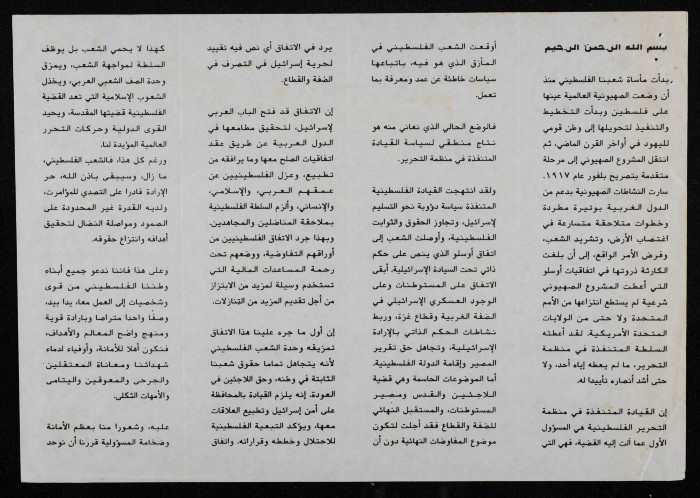 بسم الله الرحمن الرحيم
بدأت مأساة شعبنا الفلسطيني منذ
أن وضعت الصهيونية العالمية عينها
على فلسطين وبدأت التخطيط
والتنفيذ لتحويلها إلى وطن قومي
لليهود في أواخر القرن الماضي، ثم
انتقل المشروع الصهيوني إلى مرحلة
متقدمة بتصريح بلفور عام ١٩١٧.
سارت النشاطات الصهيونية بدعم من
الدول الغربية بوتيرة مطردة
وخطوات متلاحقة متسارعة في
اغتصاب الأرض، وتشريد الشعب،
وفرض الأمر الواقع، إلى أن بلغت
الكارثة ذروتها في اتفاقيات أوسلو
التي أعطت المشروع الصهيوني
شرعية لم يستطع انتزاعها من الأمم
المتحدة ولا حتى من الولايات
المتحدة الأمريكية. لقد أعطته
السلطة المتنفذة في منظمة
التحرير، ما لم يعطه إياه أحد، ولا
حتى أشد أنصاره تأييدا له.
إن القيادة المتنفذة في منظمة
التحرير الفلسطينية هي المسؤول
الأول عما آلت إليه القضية، فهي التي
أوقعت الشعب الفلسطيني في
المأزق الذي هو فيه، باتباعها
سياسات خاطئة عن عمد ومعرفة بما
تعمل.
فالوضع الحالي الذي نعاني منه هو
نتاج منطقي لسياسة القيادة
المتنفذة في منظمة التحرير.
ولقد انتهجت القيادة الفلسطينية
المتنفذة سياسة دؤوبة نحو التسليم
لإسرائيل، وتجاوز الحقوق والثوابت
الفلسطينية، وأوصلت الشعب إلى
اتفاق أوسلو الذي ينص على حكم
ذاتي تحت السيادة الإسرائيلية. أبقى
الاتفاق على المستوطنات وعلى
الوجود العسكري الإسرائيلي في
الضفة الغربية وقطاع غزة، وربط
نشاطات الحكم الذاتي بالإرادة
الإسرائيلية، وتجاهل حق تقرير
المصير وإقامة الدولة الفلسطينية.
أما الموضوعات الحاسمة وهي قضية
اللاجئين والقدس ومصير
المستوطنات، والمستقبل النهائي
للضفة والقطاع فقد أجلت لتكون
موضوع المفاوضات النهائية دون أن
يرد في الاتفاق أي نص فيه تقييد
لحرية إسرائيل في التصرف في
الضفة والقطاع.
إن الاتفاق قد فتح الباب العربي
لإسرائيل، لتحقيق مطامعها في
الدول العربية عن طريق عقد
اتفاقيات الصلح معها وما يرافقه من
تطبيع، وعزل الفلسطينيين عن
عمقهم العربي، والإسلامي،
والإنساني، وألزم السلطة الفلسطينية
بملاحقة المناضلين والمجاهدين.
وبهذا جرد الاتفاق الفلسطينيين من
أوراقهم التفاوضية، ووضعهم تحت
رحمة المساعدات المالية التي
تستخدم وسيلة لمزيد من الابتزاز
من أجل تقديم المزيد من التنازلات.
إن أول ما جره علينا هذا الاتفاق
تمزيقه وحدة الشعب الفلسطيني
لأنه يتجاهل تماما حقوق شعبنا
الثابتة في وطنه، وحق اللاجئين في
العودة: إنه يلزم القيادة بالمحافظة
على أمن إسرائيل وتطبيع العلاقات
معها، ويؤكد التبعية الفلسطينية
للاحتلال وخططه وقراراته. واتفاق
كهذا لا يحمي الشعب بل يوظف
السلطة لمواجهة الشعب، ويمزق
وحدة الصف الشعبي العربي، ويخذل
الشعوب الإسلامية التي تعد القضية
الفلسطينية قضيتها المقدسة، ويحيد
القوى الدولية وحركات التحرر
العالمية المؤيدة لنا.
ورغم كل هذا، فالشعب الفلسطيني،
ما زال، وسيبقى باذن الله، حر
الإرادة قادرا على التصدي للمؤامرت،
ولديه القدرة غير المحدودة على
الصمود ومواصلة النضال لتحقيق
أهدافه وانتزاع حقوقه.
وعلى هذا فاننا ندعو جميع أبناء
وطننا الفلسطيني من قوى
وشخصيات إلى العمل معا، يدا بيد،
وصفا واحدا متراصا وبارادة قوية
ومنهج واضح المعالم والأهداف،
فنكون أهلا للأمانة، وأوفياء لدماء
شهدائنا ومعاناة المعتقلين
والجرحى والمعوقين واليتامى
والأمهات الثكلى.
عليه، وشعورا منا بعظم الأمانة
وضخامة المسؤولية قررنا أن نوحد